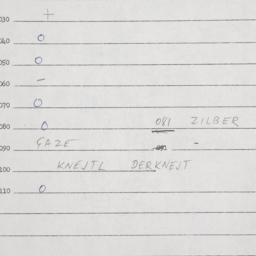 030 +
040 O
050 O
060 -
070 O
080 O 081 ZILBER
090 GAZE -
100 KNEJTL DERKNEJT
110 O